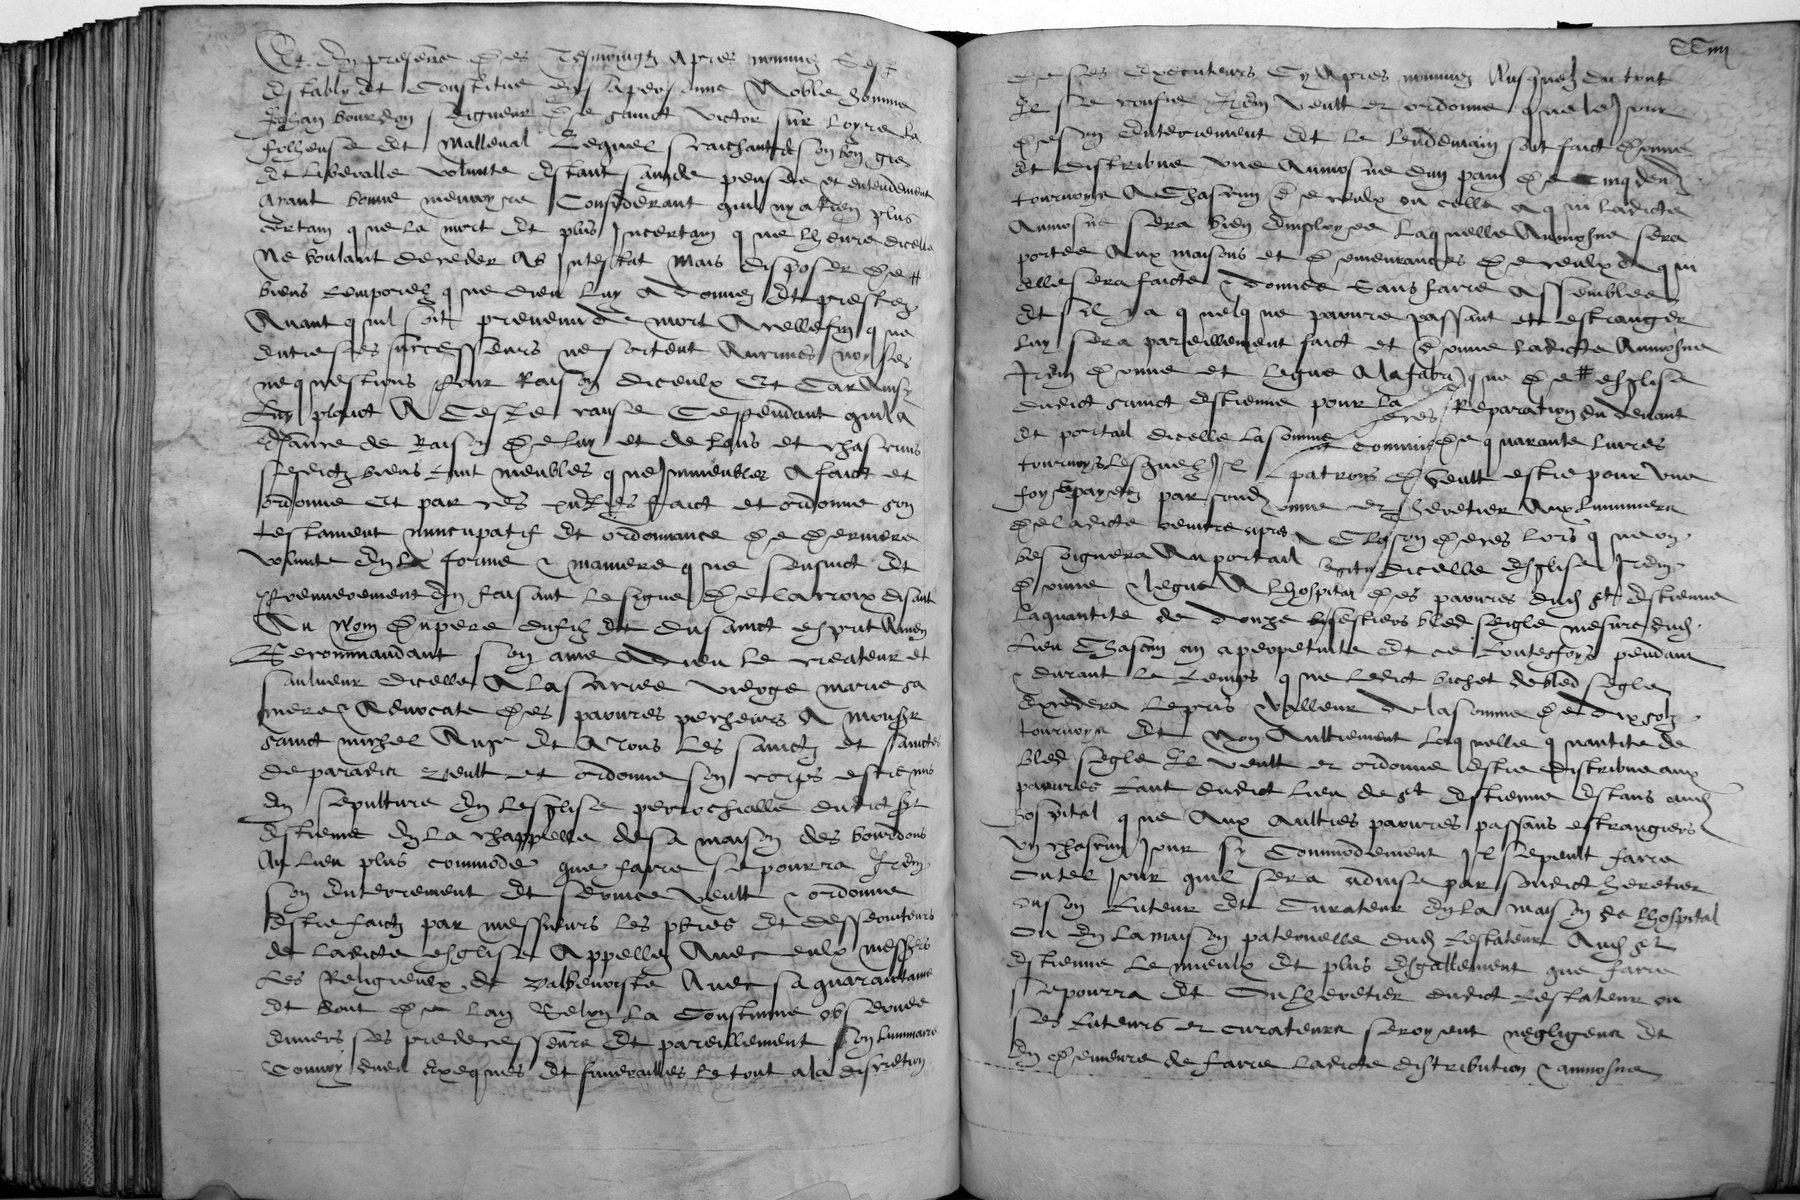 Et en presence des tesmoingtz apres nommez sest
establyt et constitue en sa personne noble homme
Jehan bourdon seigneur de sainct victor sur loyre la
folheuse et malleval Lequel saichant de son bon gre
et liberalle volunte estant sain de pensee et entendement
ayant bonne memoyre Considerant quil ny a rien plus
certain que la mort et plus Incertain que lheure dicelle
Ne voulant deceder ab intestat mais disposer de
biens temporelz que dieu luy a donnez et prestez
Avant quil soit prevenu de mort A celle fin que
entre ses successeurs ne sortent Aucunes noyses
ne questions pour Raison diceulx Et Car Ainsy
luy plaict A Ceste cause Cependant quil a
de Raison de luy et de tous et chascuns
sesdictz biens tant meubles que Immeubles A faict et
ordonne Et par ces faict et ordonne son
testament nuncupatif et ordonnance de derniere
volunte En la forme & maniere que sensuict Et
premierement En faisant le signe de la croix disant
Au Nom du pere du filz et du sainct esprit Amen
Recommandant son ame A dieu le createur et
saulveur dicelle A la sacree vierge marie sa
mere & Advocate des pauvres pecheurs A monsr
sainct michel Ange et A tous les sainctz et sainctes
de paradis veult et ordonne son corps estre mis
En sepulture En lesglise perrochialle dudict st
Estienne En la chappelle de sa maison des bourdons
Au lieu plus commode que faire se pourra Item
son Enterrement et service veult & ordonne
Estre faictz par messieurs les pbres et desserviteurs
de ladicte esglise Appellez Avec eulx messrs
les Religieulx de valbenoiste Avec sa quarantaine
et bout de lan selon la Coustume observee
envers ses predecesseurs et pareillement son luminaire
Convoy dueil exeques et funerailles le tout a la discretion
CCiiii
de ses executeurs Cy Apres nommez Ausquelz du tout
Il se confie Item veult et ordonne que le Jour
de son Enterrement et le lendemain soit faict donne
et distribue une Aumosne dun pain de Cinq den
tournoys A Chascun de ceulx ou celle a qui ladicte
Aumosne sera bien employee Laquelle Aumosne sera
portee Aux maisons et demeurances de ceulx a qui
elle sera faicte & donnee Sans faire Assemblee
Et sil y a quelque pauvre passant et estranger
luy sera pareillement faict et donne ladicte Aumosne
Item donne et legue A la fabricque de esglise
dudict sainct Estienne pour la Reparation du devant
et portail dicelle la somme de quarante livres
tournoys Lesquelz Il veult estre pour une
foys payez par sond heretier Aux luminiers
de ladicte lors que on
besoignera Au portail dicelle Esglise Item
donne & legue A lhospital des pauvres dud st Estienne
la quantite de douze sestiers bled seigle mesure dud
lieu Chascun an a perpetuite Et ce toutesfoys pendant
& durant le temps que ledict bichet de bled seigle
Excedera le pris & valleur de la somme de dix solz
tournoys Et Non Aultrement Laquelle quantite de
bled seigle Il veult et ordonne Estre distribue aux
pauvres tant dudict lieu de st Estienne Estans aud
hospital que Aux Aultres pauvres passans estrangiers
Un chascun Jour sy Commodement Il se peult faire
Ou tel Jour quil sera advise par sondict heretier
ou son tuteur et Curateur En la maison de lhospital
Ou En la maison paternelle dud testateur Aud st
Estienne le mieulx et plus esgallement que faire
se pourra Et Ou lheretier dudict testateur ou
ses tuteurs et curateurs seroyent negligens et
En demeure de faire ladicte distribution & aumosne